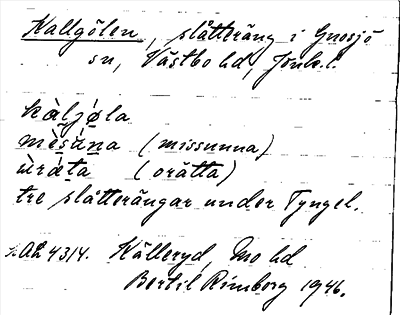 Kallgölen, slåtteräng i Gnosjö
sn, Västbo hd, Jönk. l.
kàljǿla
mèsúna (missunna)
ùrǽta (orätta)
tre slåtterängar under Tyngel.
AL 4314. Källeryd, Mo hd
Bertil Rimborg 1946.